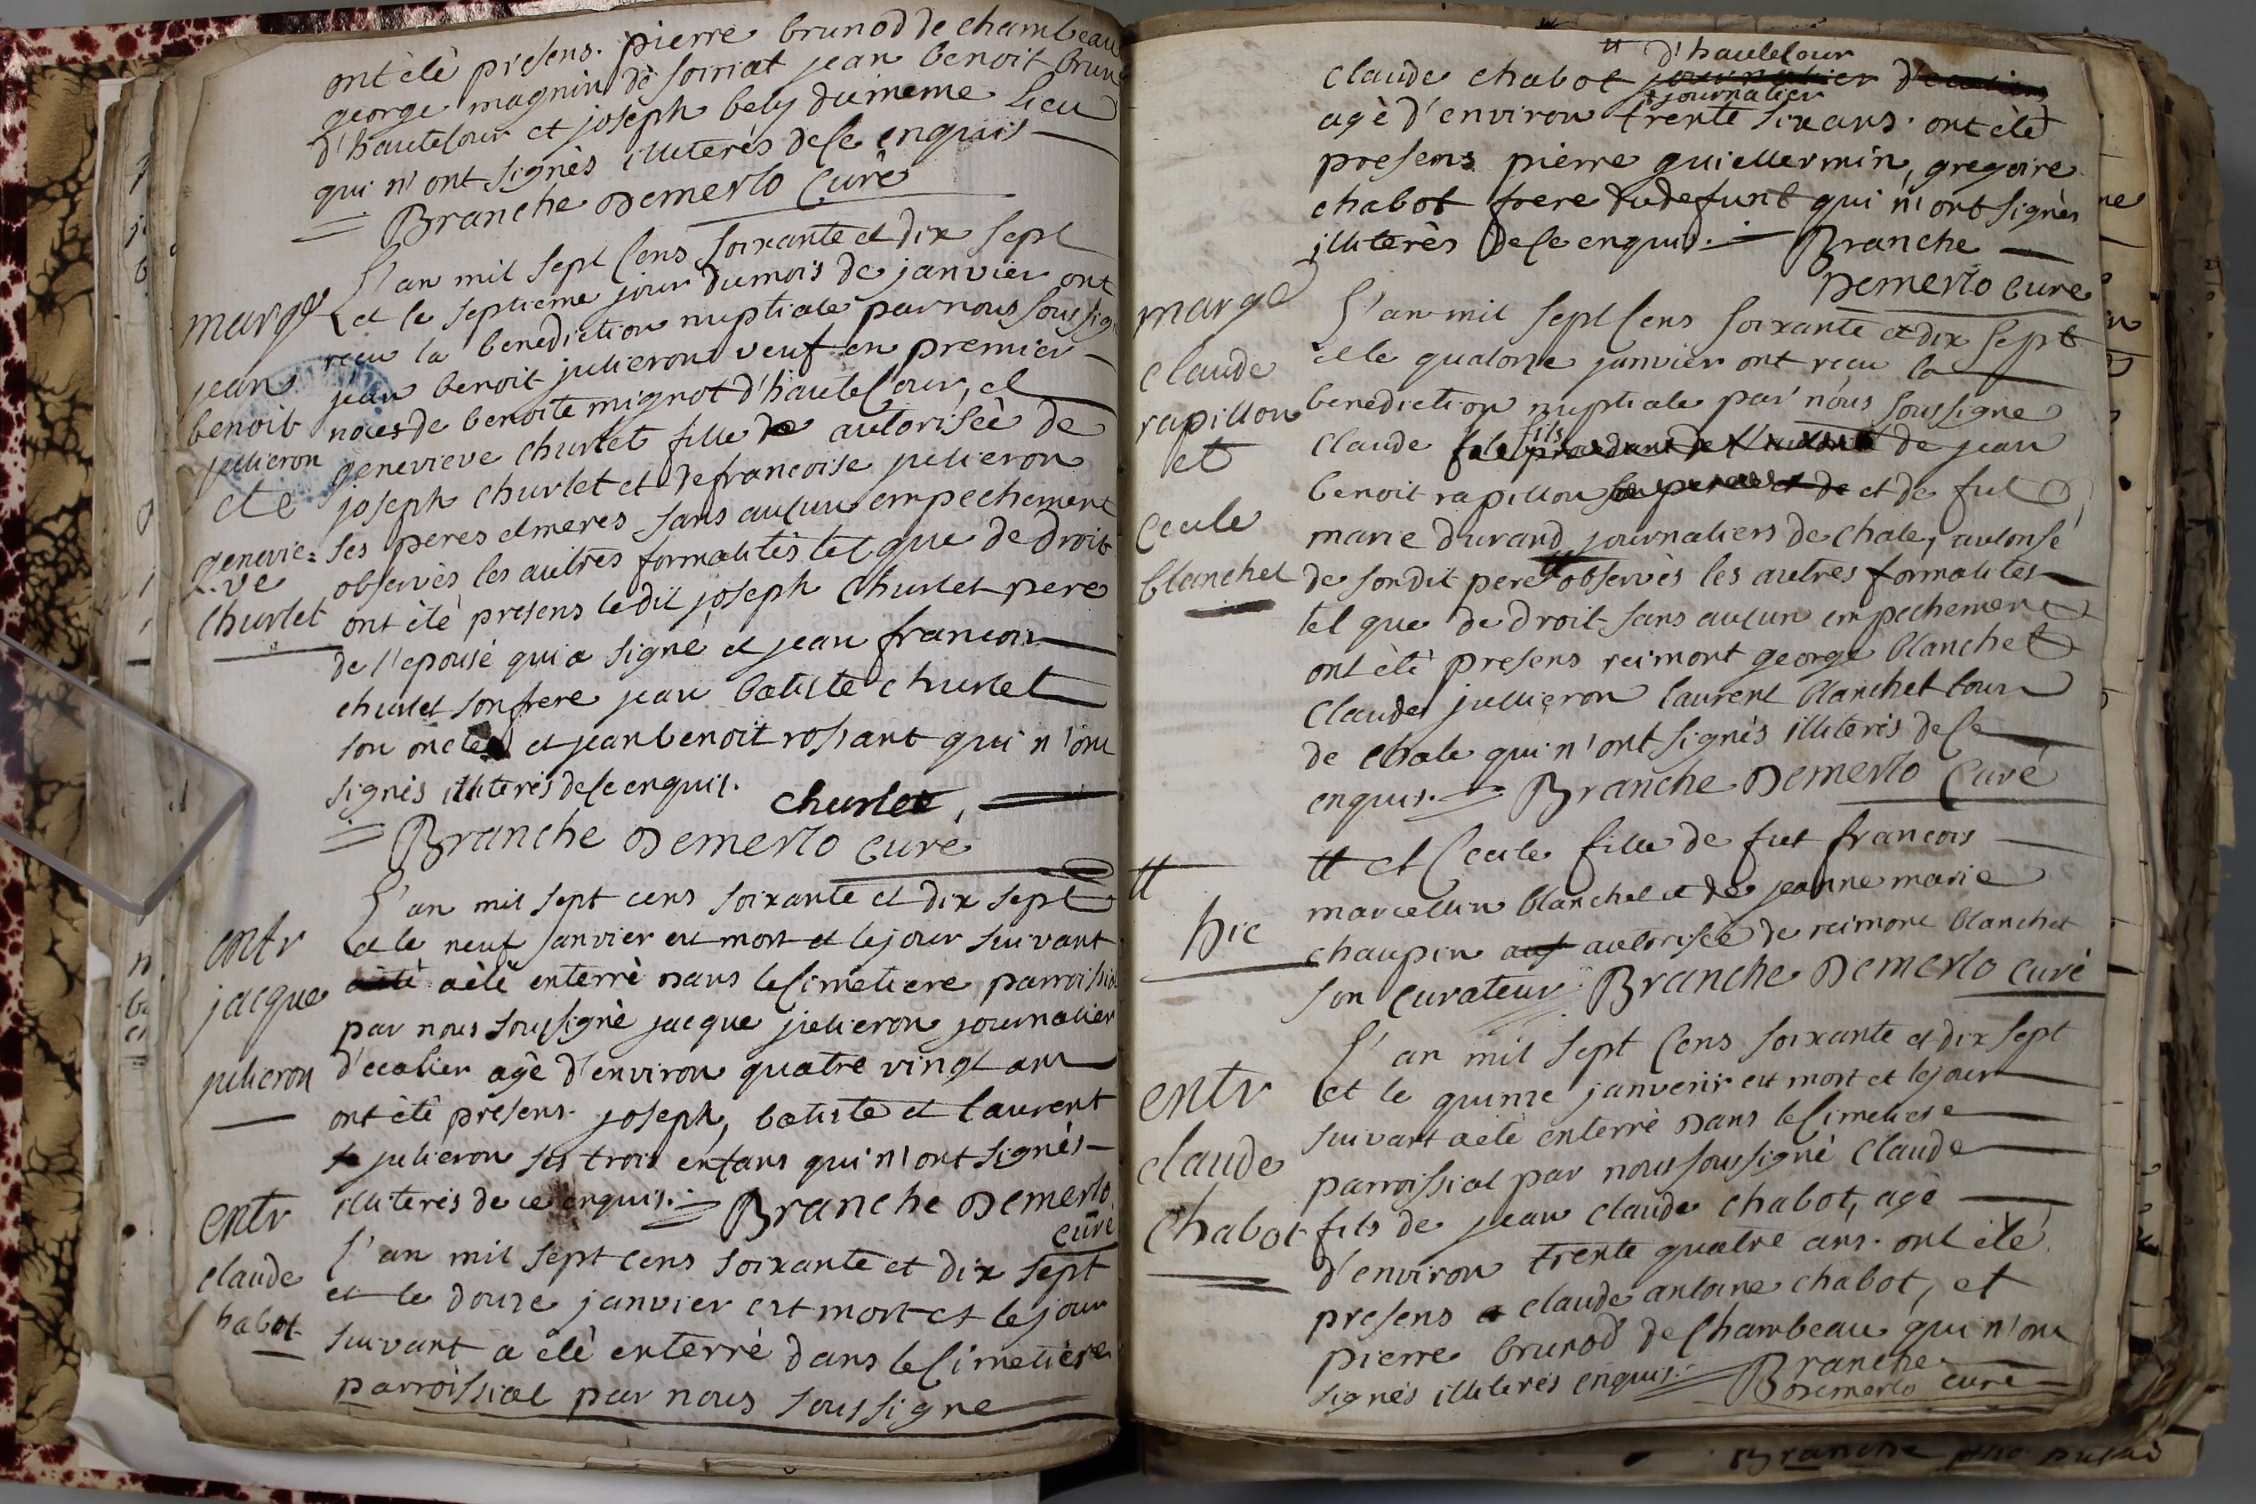 ont étè presens. pierre brunod de chambeau
george magnin de soiriat jean benoit brun
d'hautecour et joseph bely du meme lieu
qui n'ont signès illiterès de ce enquis
Branche Demerlo Curè
L'an mil sept cens soixante et dix sept
et le septieme jour du mois de janvier ont
recu la benediction nuptiale par nous soussig
jean benoit julieron veuf en premier
noces de benoite mignot d'hautecour, et
genevieve churlet fille de autorisèe de
joseph churlet et de francoise julieron
ses peres et meres sans aucun empechement
observès les autres formalitès tel que de droit
ont étè presens le dit joseph churlet pere
de l'epouse qui a signé et jean francois
churlet son frere jean batiste churlet
son oncle et jean benoit rossant qui n'ont
signès illiterès de ce enquis.
churlet,
Branche Demerlo curé
marge
jean
benoit
julieron
et
genevie=
=ve
churlet
L'an mil sept cens soixante et dix sept
et le neuf janvier est mort et le jour suivant
a étè enterrè dans le cimetiere parroissi
par nous soussignè jacque julieron journalier
agè d'environ quatre vingt ans
ont étè presens. joseph, batiste et laurent
julieron ses trois enfans qui n'ont signès
illiterès de ce enquis. Branche Demerlo
curé
entr
jacque
julieron
L'an mil sept cens soixante et dix sept
et le douze janvier est mort et le jour
suivant a étè enterré dans le cimetiere
parroissial par nous soussigne
entr
claude
habot
d'hautecour
claude chabot journalier
journalier
agè d'environ trente six ans. ont étè
presens pierre guiellermin, gregoire
chabot frere du defunt qui n'ont signès
illiterès de ce enquis. Branche
Demerlo cure
L'an mil sept cens soixante et dix sept
et le quatorze janvier ont recu la
benediction nuptiale par nous soussigne
fils
claude de jean
benoit rapillon et de fut
marie durand journaliers de chale, autorisé
de son dit pere tt observès les autres formalités
tel que de droit sans aucun empechement
ont étè presens reimont george blanchet
claude jullieron laurent blanchet tous
de chale qui n'ont signès illiterès de ce
enquis. Branche Demerlo Curé
marge
claude
rapillon
et
cecile
blanchet
tt et cecile fille de fut francois
marcellin blanchet et de jeanne marie
chaupin autorisèe de reimont blanchet
son curateur. Branche Demerlo curè
tt
hic
L'an mil sept cens soixante et dix sept
et le quinze janveiir est mort et le jour
suivant a eté enterré dans le cimetiere
parroissial par nous soussigné claude
fils de jean claude chabot, agé
d'environ trente quatre ans. ont étè
presens claude antoine chabot, et
pierre brunod de chambeau qui n'ont
signés illiterés enquis. Branche
Demerlo curé
entr
claude
chabot